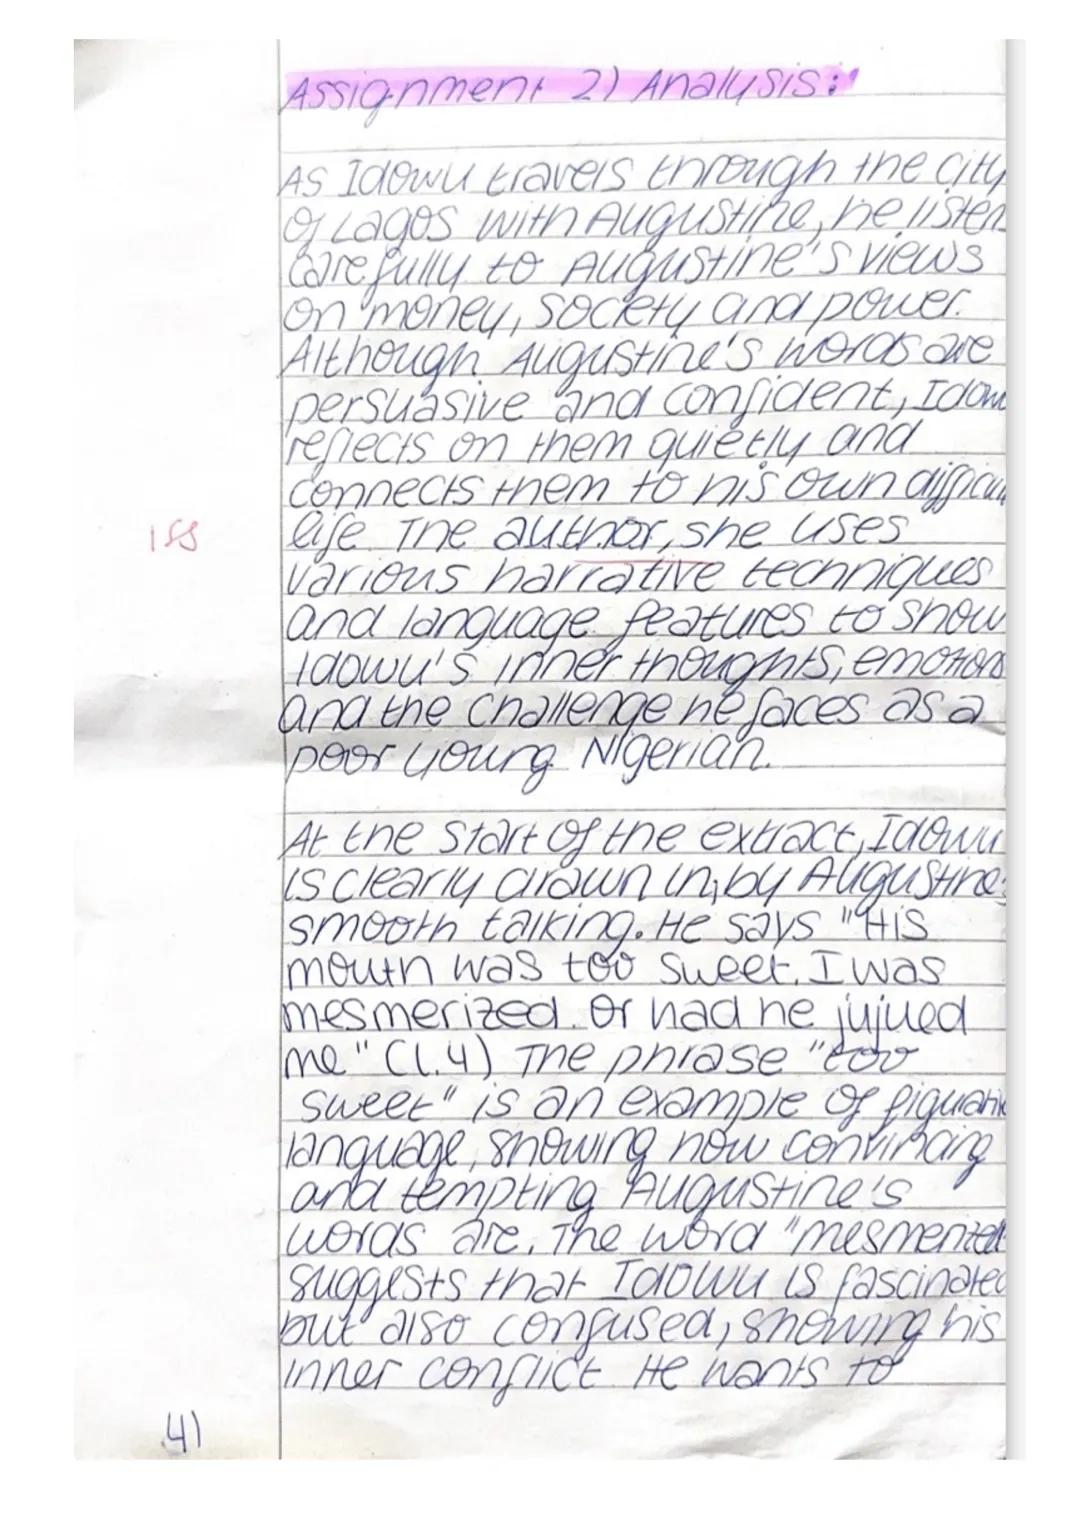 Assignment 2) Analysis:
As Idowu travels through the city
of Lagos with Augustine, he listens
carefully to Augustine's views
on money, society and power.
Although Augustine's words are
persuasive and confident, Idow
reflects on them quietly and
connects them to his own difficul
life. The author, she uses
various narrative techniques
and language features to show
Idowu's inner thoughts, emotions
and the challenge he faces as a
poor young Nigerian.
At the start of the extract, Idowu
is clearly drawn in, by Augustine
smooth talking. He says "His
mouth was too sweet. I was
mesmerized. Or had he jujued
me" (l.4) The phrase "too
sweet" is an example of figurativ
language, showing how convincing
and tempting Augustine's
words are. The word "mesmerized
suggests that Idowu is fascinated
but also confused, showing his
inner conflict. He wants to
4)